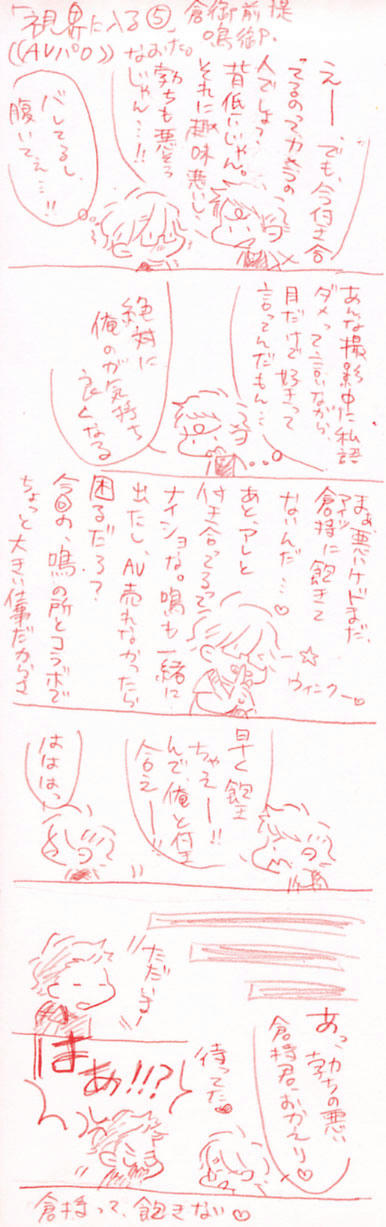 「視界に入る⑤
倉御前提
鳴御P.
((AVパロ))
なおだ。
えー、でも、今付き合
ってるのってカメラの
人でしょ?
背低いじゃん。
それに趣味悪いし、
勃ちも悪そう
なじゃん…!!
バレてるし、
腹いてぇ…!!
あんな撮影中に私語
ダメって言いながら、
目だけで好きって
言ってんだもん…
絶対に
俺のが気持ち
良くなる
まぁ悪いケドまだ、
アイツ
倉持に飽きて
ないんだ…♡
あと、アレと
付き合ってるって
ナイショな。鳴も一緒に
出たし、AV売れなかったら
困るだろ?
今回の、鳴の所とコラボで
ちょっと大きい仕事だからさ
ー☆
ウィンクー♡
早く飽き
ちゃえー!!
んで、俺と付き
合えー!!
ははは。
ただいまー
あっ、勃ちの悪い
倉持君、おかえり♡
待ってた♡
はぁ!!?
倉持って、飽きない♡